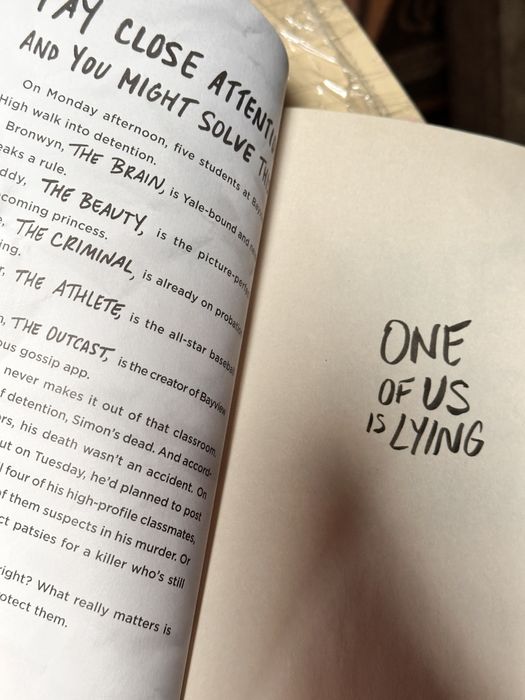 PAY CLOSE ATTENTI
AND YOU MIGHT SOLVE TH
On Monday afternoon, five students at Bay
High walk into detention.
Bronwyn, THE BRAIN, is Yale-bound and
eaks a rule.
ddy, THE BEAUTY, is the picture-perfe
coming princess.
THE CRIMINAL, is already on probation
ing.
THE ATHLETE, is the all-star baseball
THE OUTCAST, is the creator of Bayview
ous gossip app.
never makes it out of that classroom.
f detention, Simon's dead. And accord-
rs, his death wasn't an accident. On
ut on Tuesday, he'd planned to post
l four of his high-profile classmates,
f them suspects in his murder. Or
ct patsies for a killer who's still
right? What really matters is
otect them.
ONE
OF US
IS LYING